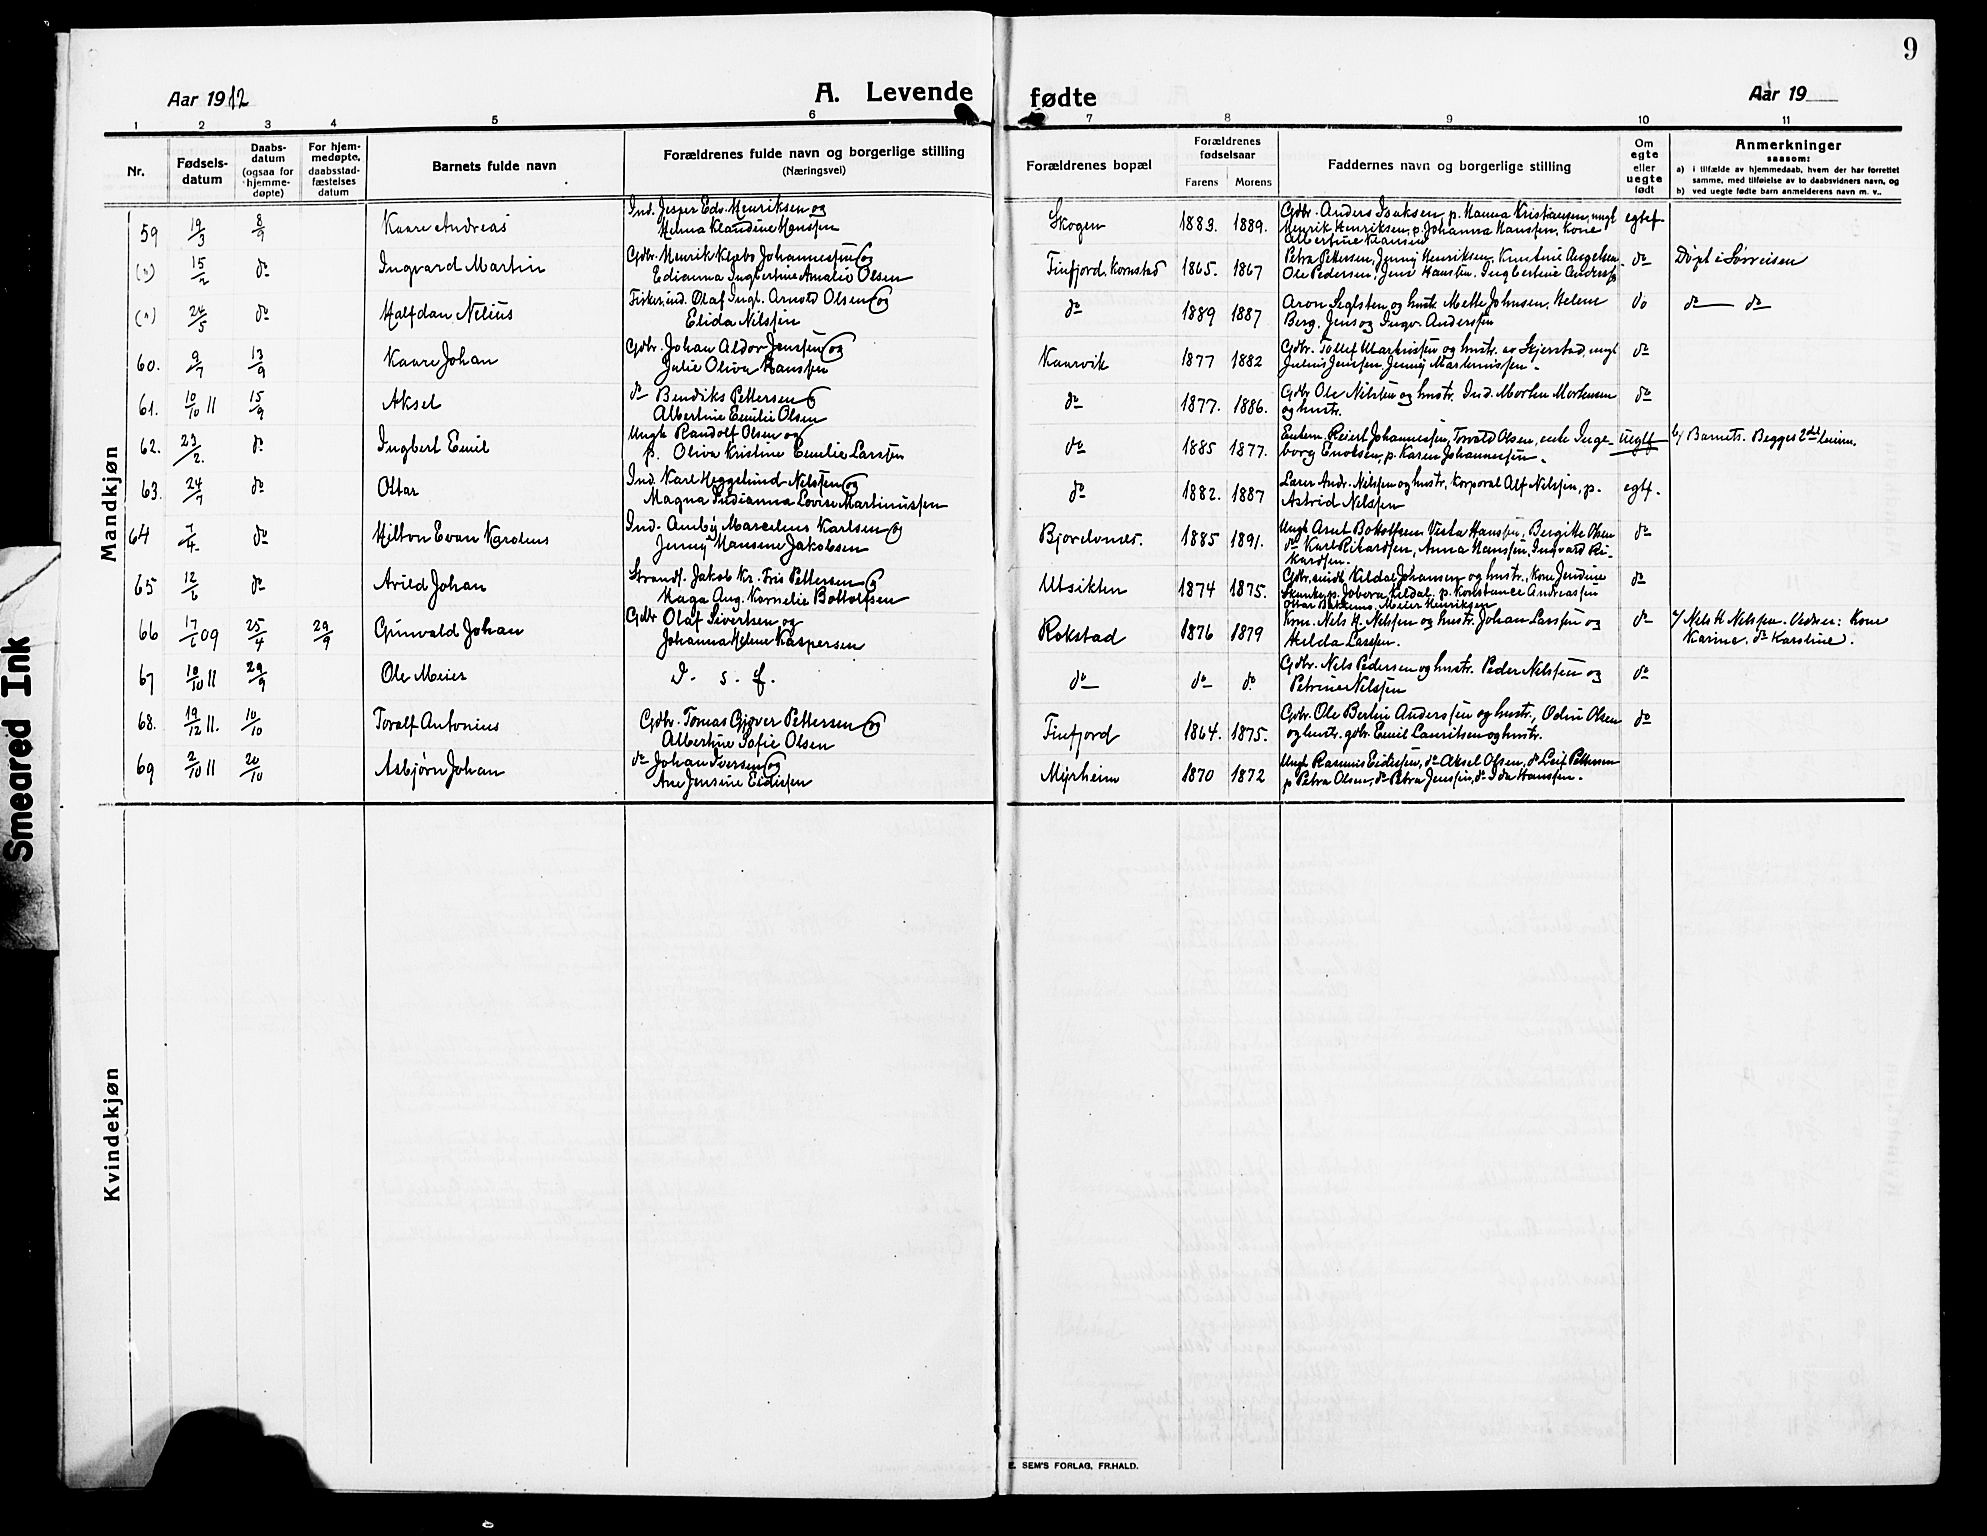 9
Aar 1912
A. Levende
fødte
Aar 19
1 2 3 4 5 6 7 8 9 10 11
Nr.
Fødselsdatum
Daabsdatum (ogsaa for hjemmedøpte)
For hjemmedøpte, daabsstadfæstelses datum
Barnets fulde navn
Forældrenes fulde navn og borgerlige stilling
(Næringsvei)
Forældrenes bopæl
Forældrenes fødselsaar
Farens Morens
Faddernes navn og borgerlige stilling
Om egte eller uegte født
Anmerkninger
saasom:
a) i tilfælde av hjemmedaab, hvem der har forrettet
samme, med tilføielse av to daabsvidners navn, og
b) ved uegte fødte barn anmelderens navn m. v.
Mandkjøn
59 19/3 8/9 Kaare Andreas
Ind. Jesper Edv. Henriksen og
Helma Klaudine Hanssen
Skogen 1883. 1889.
Gdbr. Anders Isaksen, p. Hanna Kristiansen, ungk
Henrik Henriksen, p. Johanna Hanssen, Kone
Albertine Klausen
egtef.
(") 15/2 do Ingvard Martin
Gdbr. Henrik Klæbo Johannessen og
Edianna Ingbertine Amalie Olsen
Finfjord, Kornstad 1865. 1867
Petra Pettersen, Jenny Henriksen, Kristine Angelsen
Ole Pedersen, Jens Hansen, Ingbertine Anderss.
do Døpt i Sørreisen
(") 24/5 do Halfdan Nelius
Fisker, ind. Olaf Ingl. Arnold Olsen og
Elida Nilssen
do 1889 1887
Aron Seglsten og hustr. Mette Johnsen, Helene
Berg, Jens og Ingv. Anderssen
do do do
60. 9/7 13/9 Kaare Johan
Gdbr. Johan Aldor Jenssen og
Julie Oliva Hanssen
Kaarvik 1877 1882
Gdbr. Tollef Martinssen og hustr. av Skjerstad, ungk
Julius Jenssen, Jenny Martinussen.
do
61. 10/10 11 15/9 Aksel
do Bendiks Pettersen og
Albertine Emilie Olsen
do 1877. 1886.
Gdbr Ole Nilssen og hustr. Ind. Morten Mortensen
og hustr.
do
62. 23/2. do Ingbert Emil
Ungk Randolf Olsen og
p. Oliva Kristine Emilie Larssen
do 1885 1877.
Enkem. Reiert Johannessen, Torvald Olsen, enke Inge-
borg Enoksen, p. Karen Johannessen.
uegtf b/ Barnets. Begges 2det leierm.
63. 24/7 do Ottar
Ind. Karl Heggelund Nelssen og
Magna Indianna Lovise Martinussen
do 1882. 1887
Lærer Andr. Nilssen og hustr., Korporal Alf Nelssen, p.
Astrid Nelssen
egtf.
64 7/4. do Hilton Evan Karolius
Ind. Amby Marcelius Karlsen og
Jenny Hansine Jakobsen
Bjorelvnes. 1885 1891.
Ungk Arnt Botolfsen, Vesta Hanssen, Bergitte Olsen
do Karl Rikardsen, Anna Hanssen, Ingvard Ri-
kardsen.
do
65 12/6 do Arild Johan
Strands. Jakob Kr. Fris Pettersen og
Haga Aug. Kornelie Bottolfsen
Utsikten 1874 1875.
Gdbr. smidt Kildal Johansen og hustr., Kone Jendine
Skanke, p. Jobora Kildal, p. Konstance Andreassen
Ottar Bakkemo, Meier Henriksen
do
66 17/6 09 25/4 29/9 Grunvald Johan
Gdbr Olaf Sivertsen og
Johanna Helene Kaspersen
Rokstad 1876 1879
Kone. Nils H. Nelssen og hustr. Johan Larssen og
Hilda Larssen.
do a/ Nils H Nelssen. Vidner: Kone
Karine, do Karoline.
67 10/10 11 29/9 Ole Meier
D. s. f.
do do do
Gdbr. Nels Pedersen og hustr. Peder Nelssen og
Petrine Nelssen
do
68. 19/12 11. 10/10 Toralf Antonius
Gdbr. Tomas Gjøver Pettersen og
Albertine Sofie Olsen
Finfjord 1864. 1875.
Gdbr. Ole Berlin Anderssen og hustr., Odin Olsen
og hustr. gdbr. Emil Lauritsen og hustr.
do
69 2/10 11 20/10 Asbjørn Johan
do Johan Iversen og
Ane Jensine Eidissen
Myrheim 1870 1872
Ungk Rasmus Eidissen, do Aksel Olsen, do Leif Pettersen
p Petra Olsen, do Petra Jenssen, do Ida Hanssen.
Kvindekjøn
E. SEM'S FORLAG, FR.HALD.
Smeared Ink